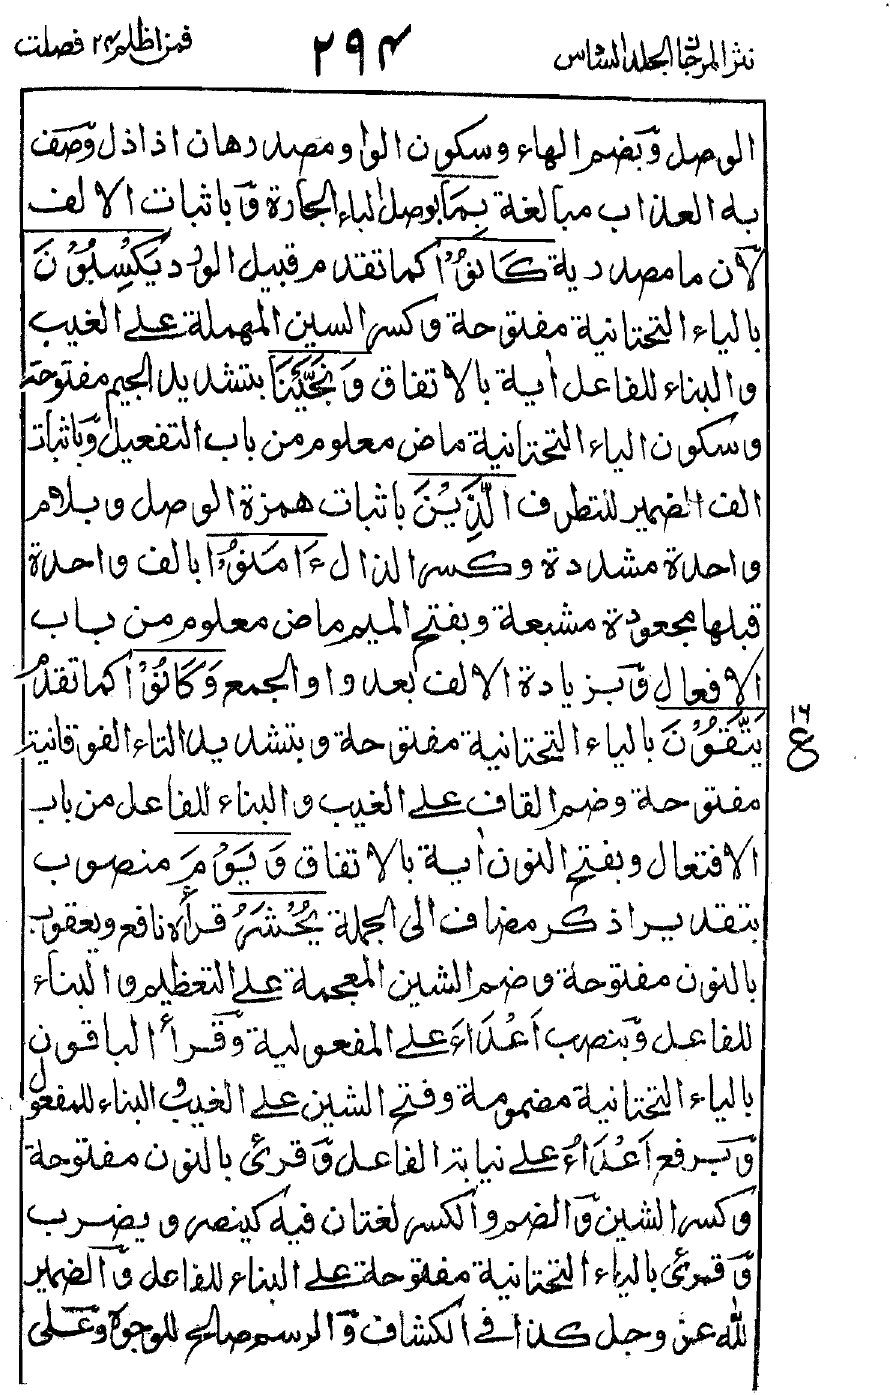 نثر المرجان المجلد السادس ۲۹۴ فمن اظلم ۲۴ فصلت
الوصل وَبضم الهاء وسكون الواو مصدر هان اذا ذل وَصف
به العذاب مبالغة بِمَا بوصل الباء الجارة وَباثبات الالف
لان ما مصدرية كَانُوْا كما تقدم قبيل الورد يَكْسِبُوْنَ
بالياء التحتانية مفتوحة وكسر السين المهملة على الغيب
والبناء للفاعل أية بالاتفاق وَنَجَّيْنَا بتشديد الجيم مفتوحة
وسكون الياء التحتانية ماض معلوم من باب التفعيل وَباثبات
الف الضمير للتطرف الَّذِيْنَ باثبات همزة الوصل وبلام
واحدة مشددة وكسر الذال ءَامَنُوْا بالف واحدة
قبلها مجعودة مشبعة وبفتح الميم ماض معلوم من باب
الافعال وَبزيادة الالف بعد واو الجمع وَكَانُوْا كما تقدم
يَتَّقُوْنَ بالياء التحتانية مفتوحة وبتشديد التاء الفوقانية
۱۶
ع
مفتوحة وضم القاف على الغيب والبناء للفاعل من باب
الافتعال وبفتح النون أية بالاتفاق وَيَوْمَ منصوب
بتقدير اذكر مضاف الى الجملة يُحْشَرُ قرأه نافع ويعقوب
بالنون مفتوحة وضم الشين المعجمة على التعظيم والبناء
للفاعل وَبنصب اَعْدَاءَ على المفعولية وَقرأ الباقون
بالياء التحتانية مضمومة وفتح الشين على الغيب والبناء للمفعول
وَبرفع اَعْدَاءُ على نيابة الفاعل وَقرئ بالنون مفتوحة
وكسر الشين وَالضم والكسر لغتان فيه كينصر ويضرب
وَقرئ بالياء التحتانية مفتوحة على البناء للفاعل وَالضمير
لله عز وجل كذا في الكشاف وَالرسم صالح للوجوه وَعلى